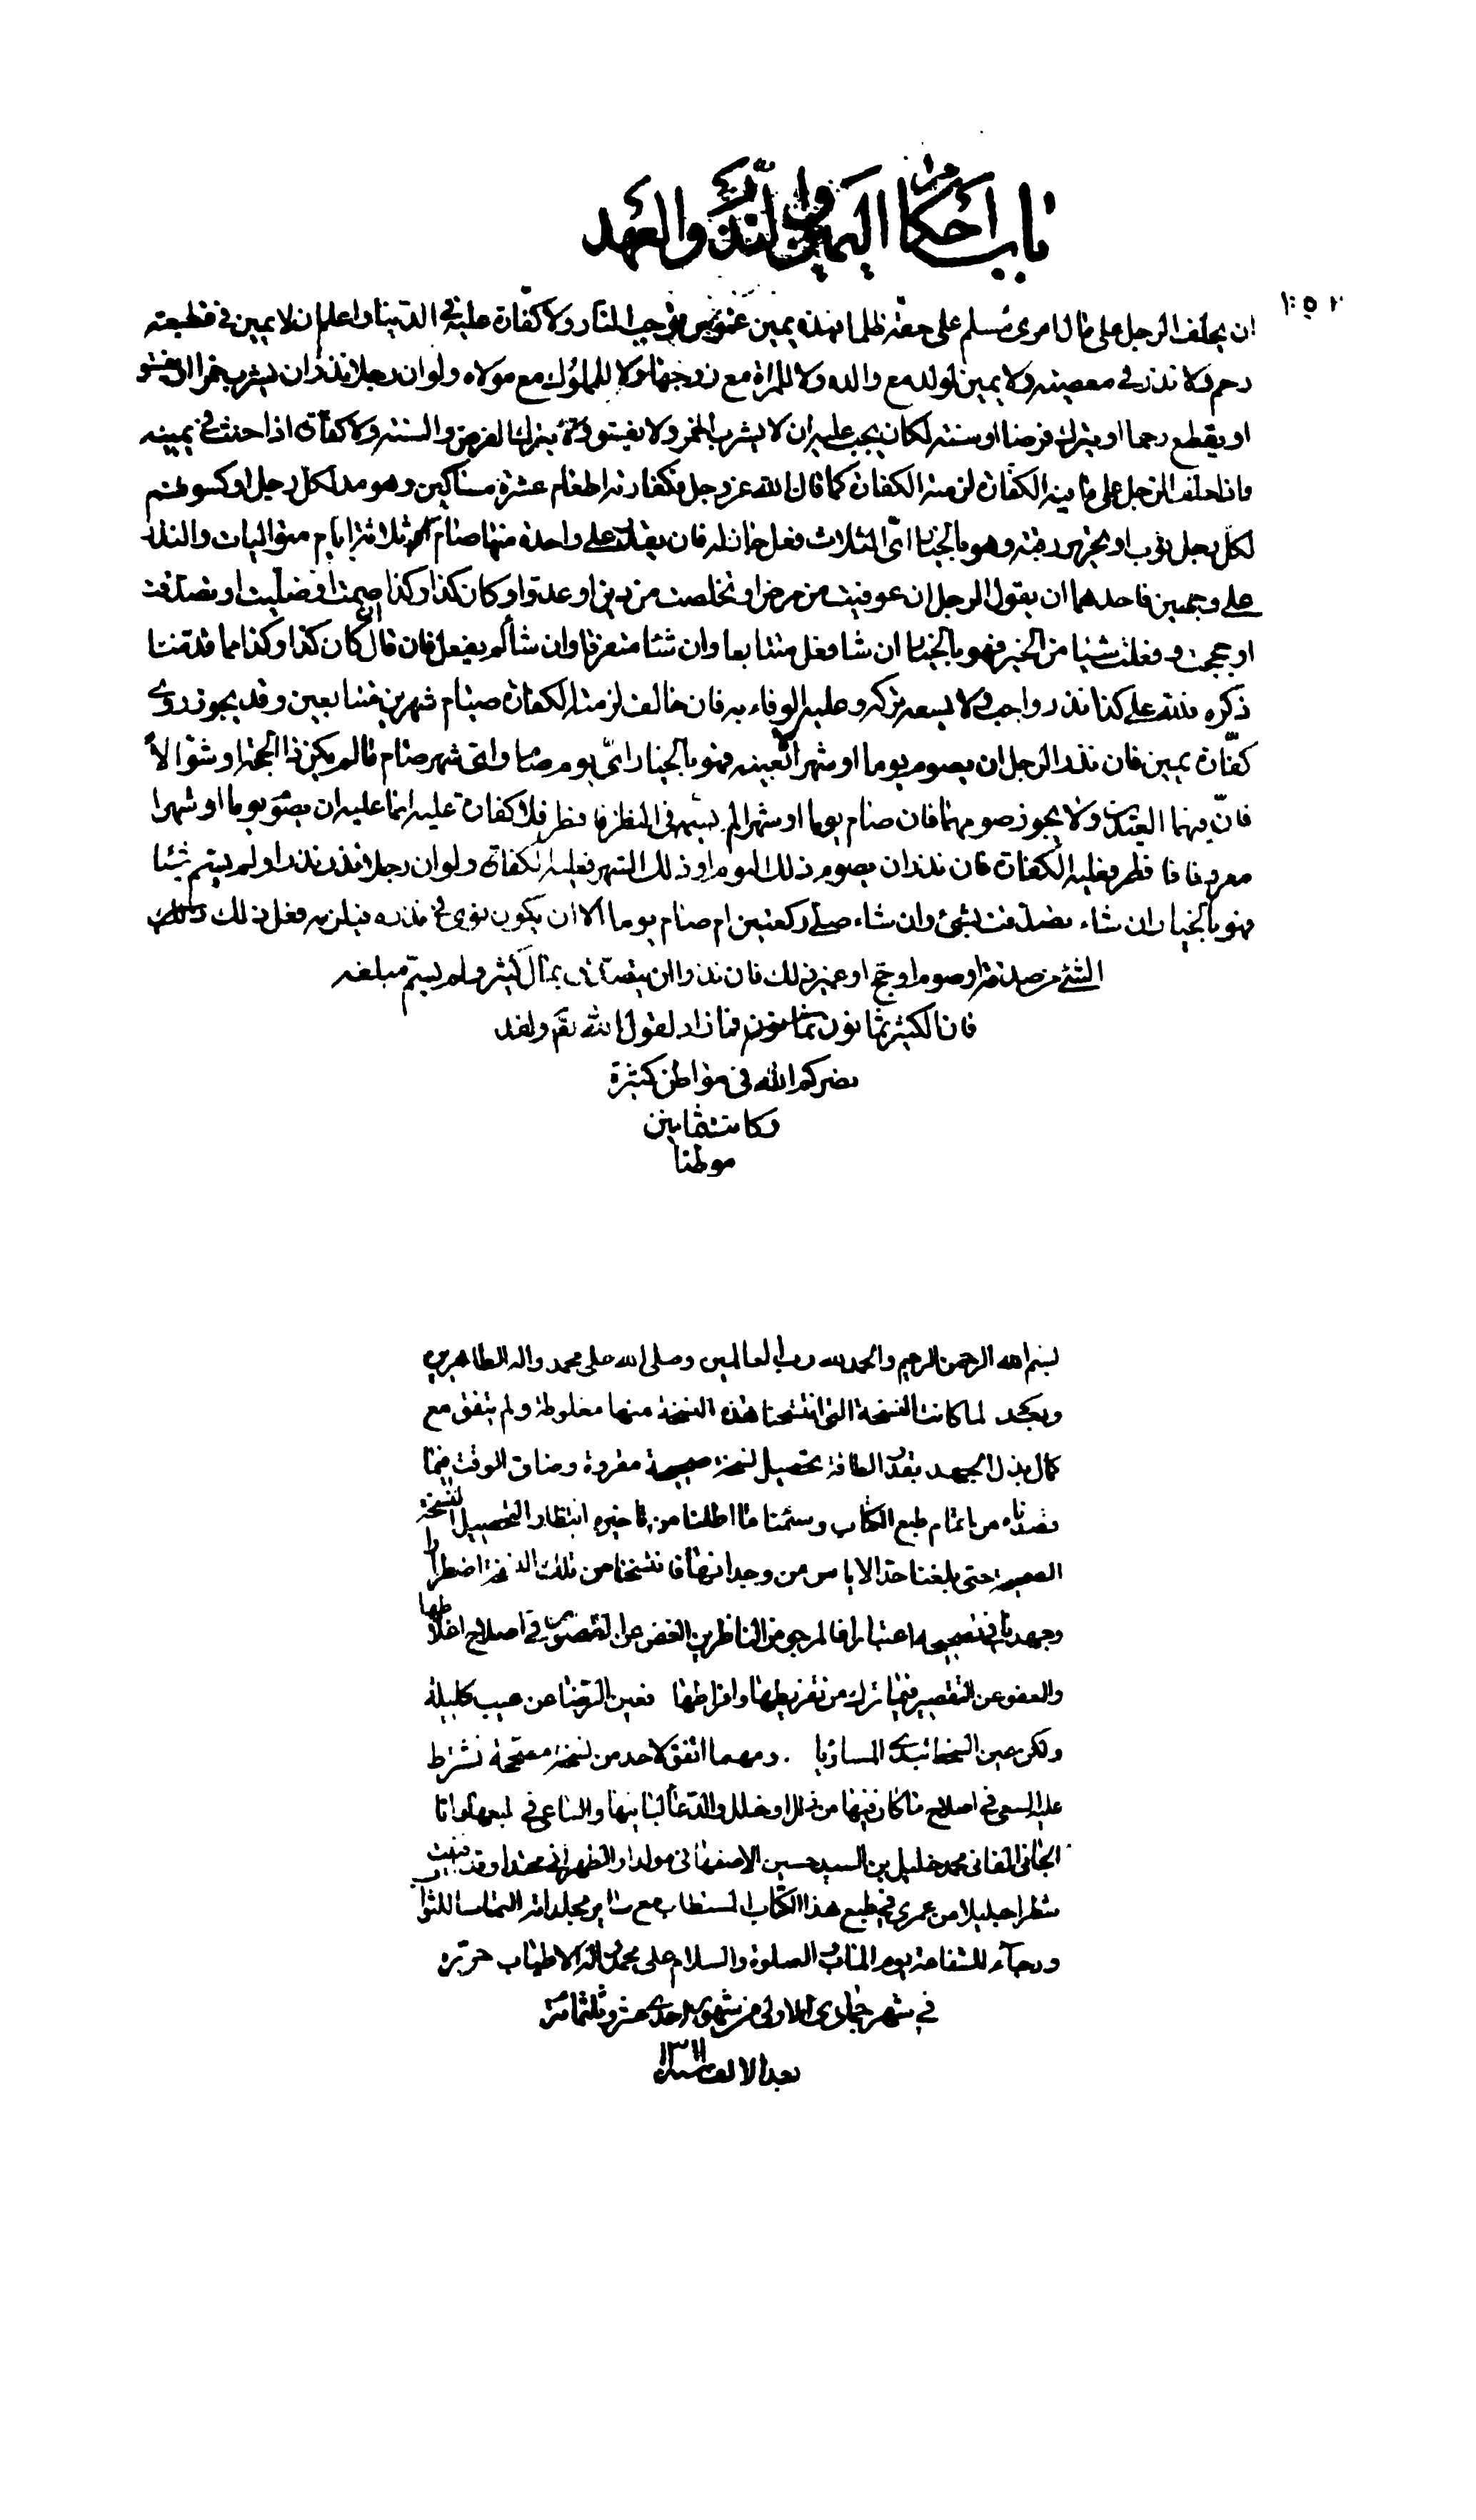 باب احكام اليمين والنذر والعهد
١٠٥٢
ان يحلف الرجل على مال امرئ مسلم على حقه ظلما فهذه يمين غموس توجب النار ولا كفارة عليه في الدنيا واعلم ان لا يمين في قطيعة
رحم ولا نذر في معصية ولا يمين لولد مع والده ولا للمرأة مع زوجها ولا للمملوك مع مولاه ولو ان رجلا نذر ان يشرب خمرا او يفسق
او يقطع رحما او يترك فرضا او سنة لكان يجب عليه ان لا يشرب الخمر ولا يفسق ولا يترك الفرض والسنة ولا كفارة اذا حنث في يمينه
واذا حلف الرجل على ما فيه الكفارة لزمته الكفارة كما قال الله عز وجل فكفارته اطعام عشرة مساكين وهو مد لكل رجل او كسوتهم
لكل رجل ثوب او تحرير رقبة وهو بالخيار اي الثلاث فعل جاز له فان لم يقدر على واحدة منها صام ثلاثة ايام متواليات والنذر
على وجهين فاحدهما ان يقول الرجل ان عوفيت من مرض او تخلصت من دين او عدو او كان كذا وكذا صمت او صليت او تصدقت
او حججت و فعلت شيئا من الخير فهو بالخيار ان شا فعل متتابعا وان شئا متفرقا وان شأ لم يفعل فان قال ان كان كذا وكذا مما قدمنا
ذكره فلله على كذا نذر واجب ولا يسعه تركه وعليه الوفاء به فان خالف لزمته الكفارة صيام شهرين متتابعين وقد يجوز روى
كفّارة يمين فان نذر الرجل ان يصوم يوما او شهرا لا بعينه فهو بالخيار ايّ يوم صام واي شهر صام ما لم يكن ذا الحجة او شوالا
فانّ فيهما العيدين ولا يجوز صومهما فان صام يوما او شهرا لم يسمه في النذر فافطر فلا كفارة عليه انما عليه ان يصوم يوما او شهرا
معروفا فافطر فعليه الكفارة فان نذر ان يصوم ذلك اليوم او ذلك الشهر فعليه الكفارة ولو ان رجلا نذر نذرا ولم يسم شيئا
فهو بالخيار ان شاء تصدّق بشئ وان شاء صلى ركعتين ام صام يوما الا ان يكون نوى في نذره فيلزمه فعل ذلك
الشئ من صدقة او صوم او حج او غير ذلك فان نذر ان يتصدق بمال كثير ولم يسم مبلغه
فان الكثير ثمانون فما زاد لقول الله تعم ولقد
نصركم الله في مواطن كثيرة
وكانت ثمانين
موطنا
بسم الله الرحمن الرحيم والحمد لله رب العالمين وصلى الله على محمد واله الطاهرين
وبعد لما كانت النسخة التي انتسخنا هذه النسخة منها مغلوطة ولم يتفق مع
كمال بذل الجهد بقدر الطاقة تحصيل نسخة صحيحة مقروة وضاق الوقت فيما
قصدناه من اتمام طبع الكتاب وسئمنا ما اطلنا من تاخيره انتظار التحصيل النسخة
الصحيحة حتى بلغنا حد الاياس من وجدانها فانتسخنا من تلك النسخة اضطرارا
وجهدنا في تصحيحه اعتبارا فالمرجو من الناظرين الغض عن القصور في اصلاح اغلاطها
والعفو عن التقصير فيما ترك من تفريطها وافراطها فعين الرضا عن عيب كليلة
ولكن عين السخط تبدي المساويا . ومهما اتفق لاحد من نسخة مصححة نشرط
عليه السعي في اصلاح ما كان فيها من زلل او خلل والدعاء لبانيها والساعي في طبعها وانا
الجاني الفاني محمد خليل بن السيد حسين الاصفهاني مولدا والطهراني محتدا وقد افنيت
شطرا جليلا من عمري في طبع هذا الكتاب المستطاب مع سائر مجلداته التماسا للثواب
ورجآء للشفاعة يوم المآب والصلوة والسلام على محمد واله الاطياب حرره
في شهر جمادى الاولى من شهور احدى عشر وثلثمائة
بعد الالف ١٣١١